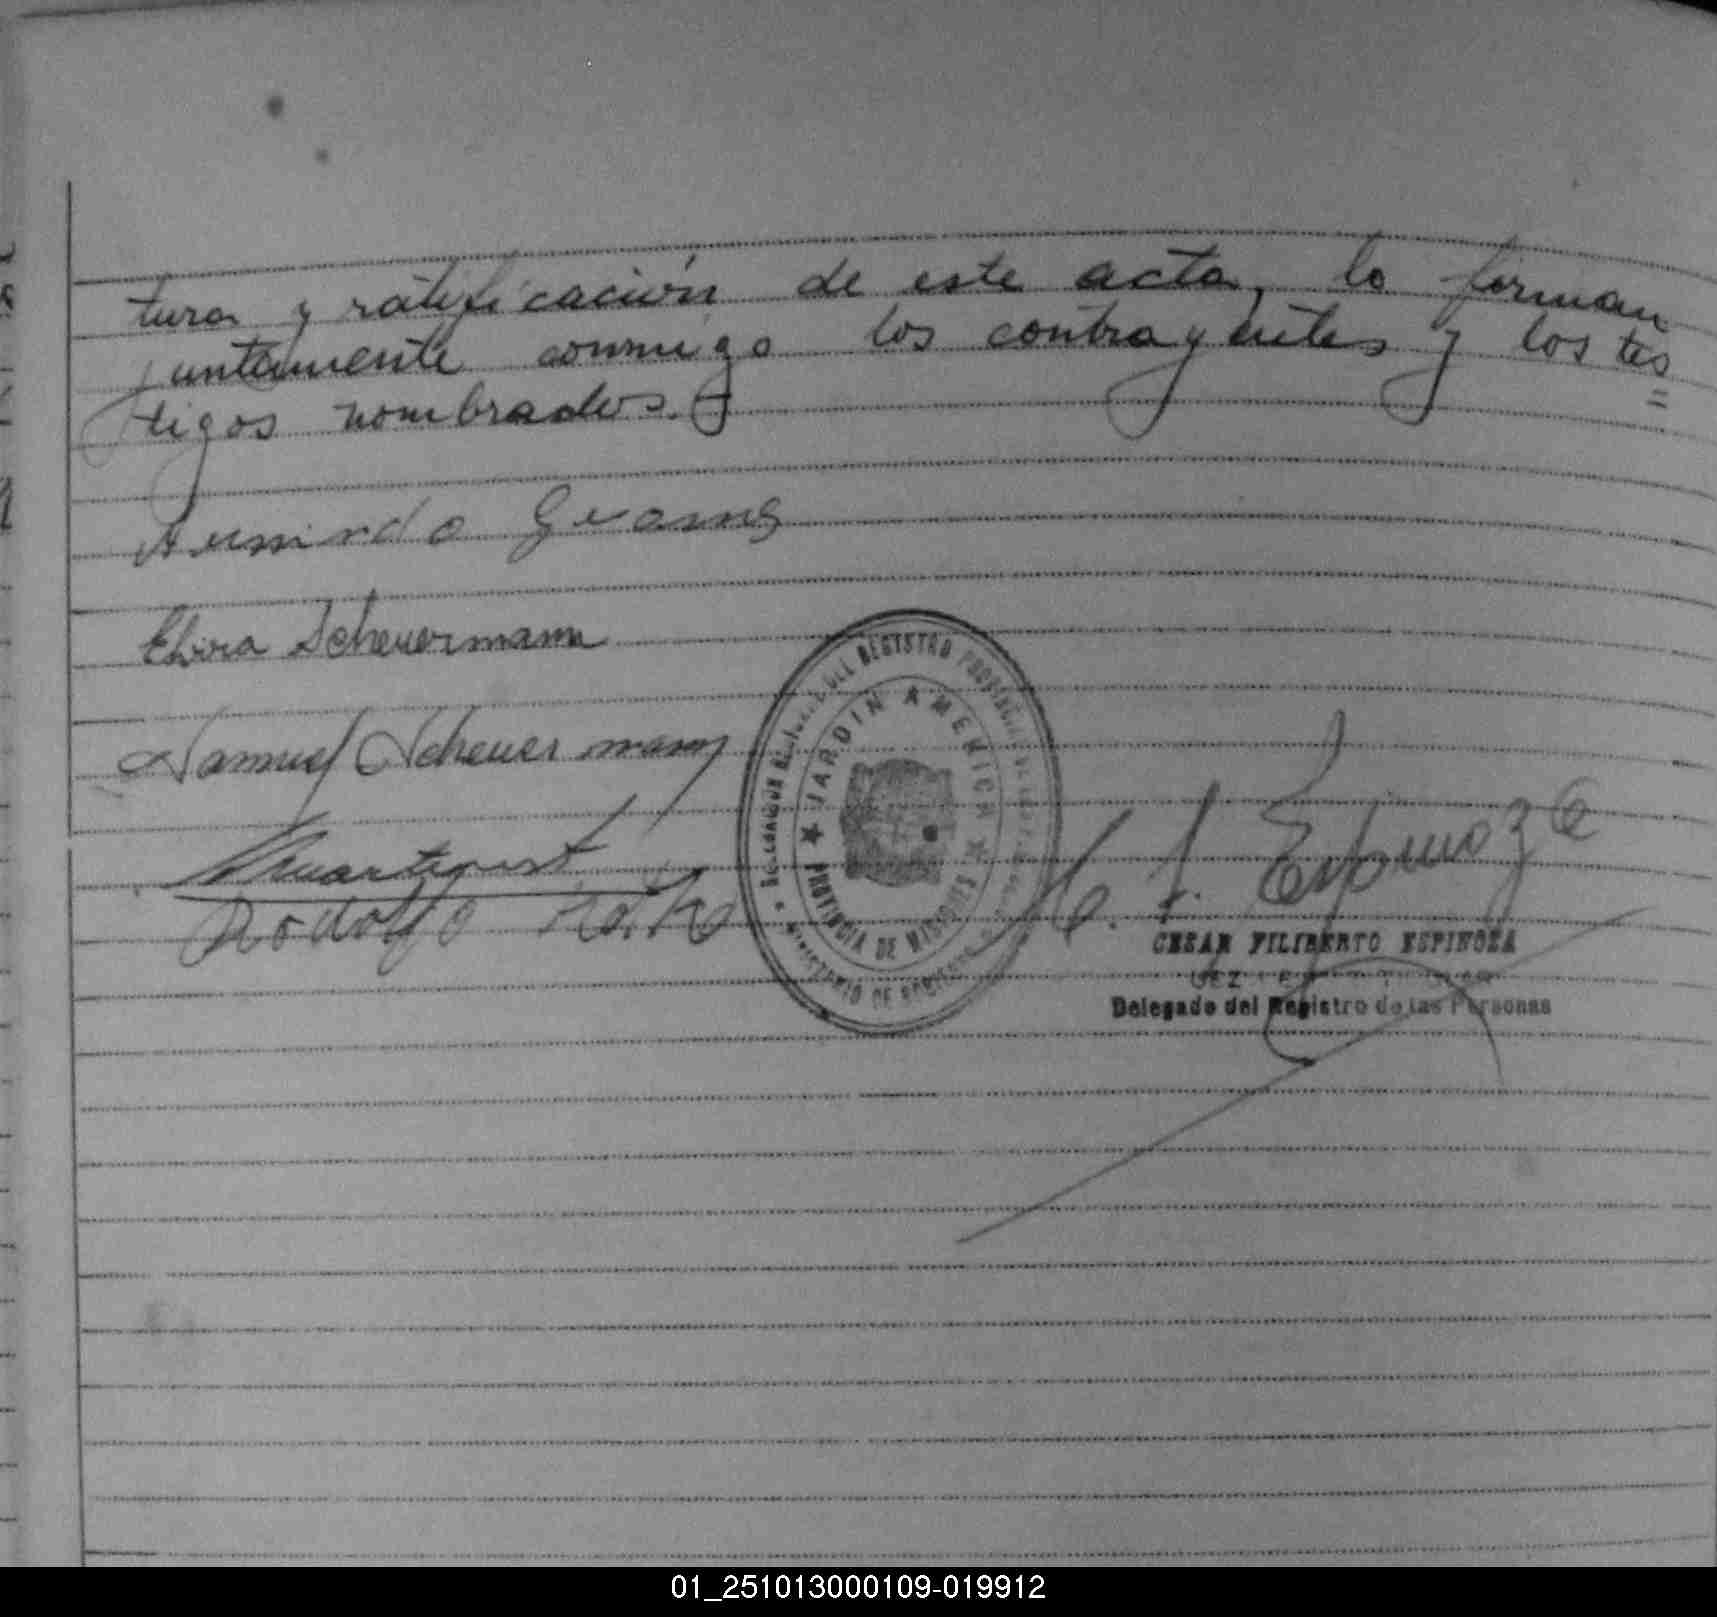 tura y ratificación de este acta, lo firman
juntamente conmigo los contrayentes y los tes
=
tigos nombrados.-
Armindo
Elvira Scheuermann
Samuel Scheuermann
Rodolfo
C. F. Espinoza
REGISTRO PROVINCIAL DE LAS
JARDIN AMERICA
PROVINCIA DE MISIONES
MINISTERIO DE GOBIERNO
CESAR FILIBERTO ESPINOZA
Delegado del Registro de las Personas
01_251013000109-019912